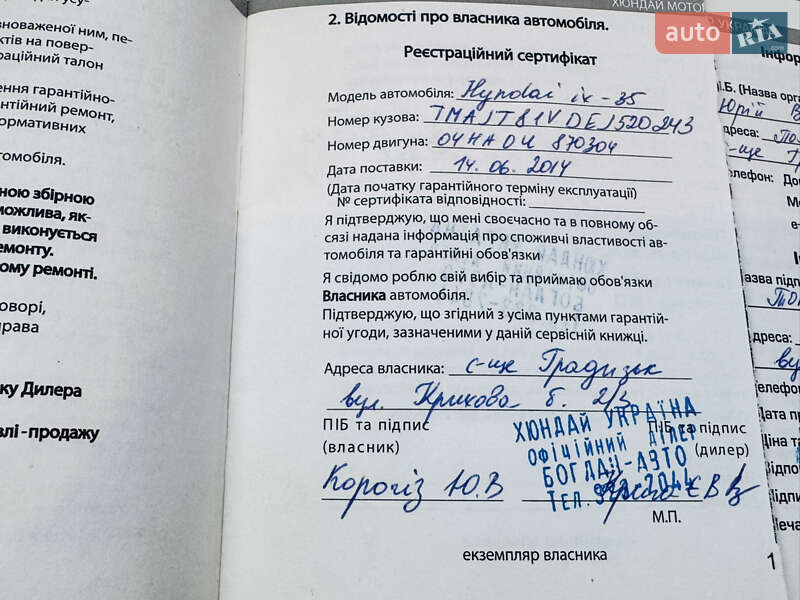 вноваженої ним, пе-
ктів на повер-
раційний талон
ення гарантійно-
нтійний ремонт,
формативних
томобіля.
ною збірною
можлива, як-
виконується
емонту.
ому ремонті.
оворі,
рава
ку Дилера
влі-продажу
2. Відомості про власника автомобіля.
Реєстраційний сертифікат
Модель автомобіля: Hyndai ix-35
Номер кузова: TMAJT81VDEJ520243
Номер двигуна: 04HA0U 870304
Дата поставки: 14. 06. 2014
(Дата початку гарантійного терміну експлуатації)
№ сертифіката відповідності:
Я підтверджую, що мені своєчасно та в повному об-
сязі надана інформація про споживчі властивості ав-
томобіля та гарантійні обов'язки
Я свідомо роблю свій вибір та приймаю обов'язки
Власника автомобіля.
Підтверджую, що згідний з усіма пунктами гарантій-
ної угоди, зазначеними у даній сервісній книжці.
Адреса власника: с-ще Градизьк
вул. Крихова б. 2/3
ПІБ та підпис
(власник)
ПІБ та підпис
(дилер)
ХЮНДАЙ УКРАЇНА
ОФІЦІЙНИЙ ДІЛЕР
БОГДАН-АВТО
Корогіз Ю.В
М.П.
екземпляр власника
1
ХЮНДАЙ МОТО
auto RIA
.com
Інфор
І.Б. (Назва орг
Юрій В
дреса:
с-ще
елефон:
е-
азва під
дреса:
вул
елефо
ата пр
Ціна та
Відпо
Підпи
Печа